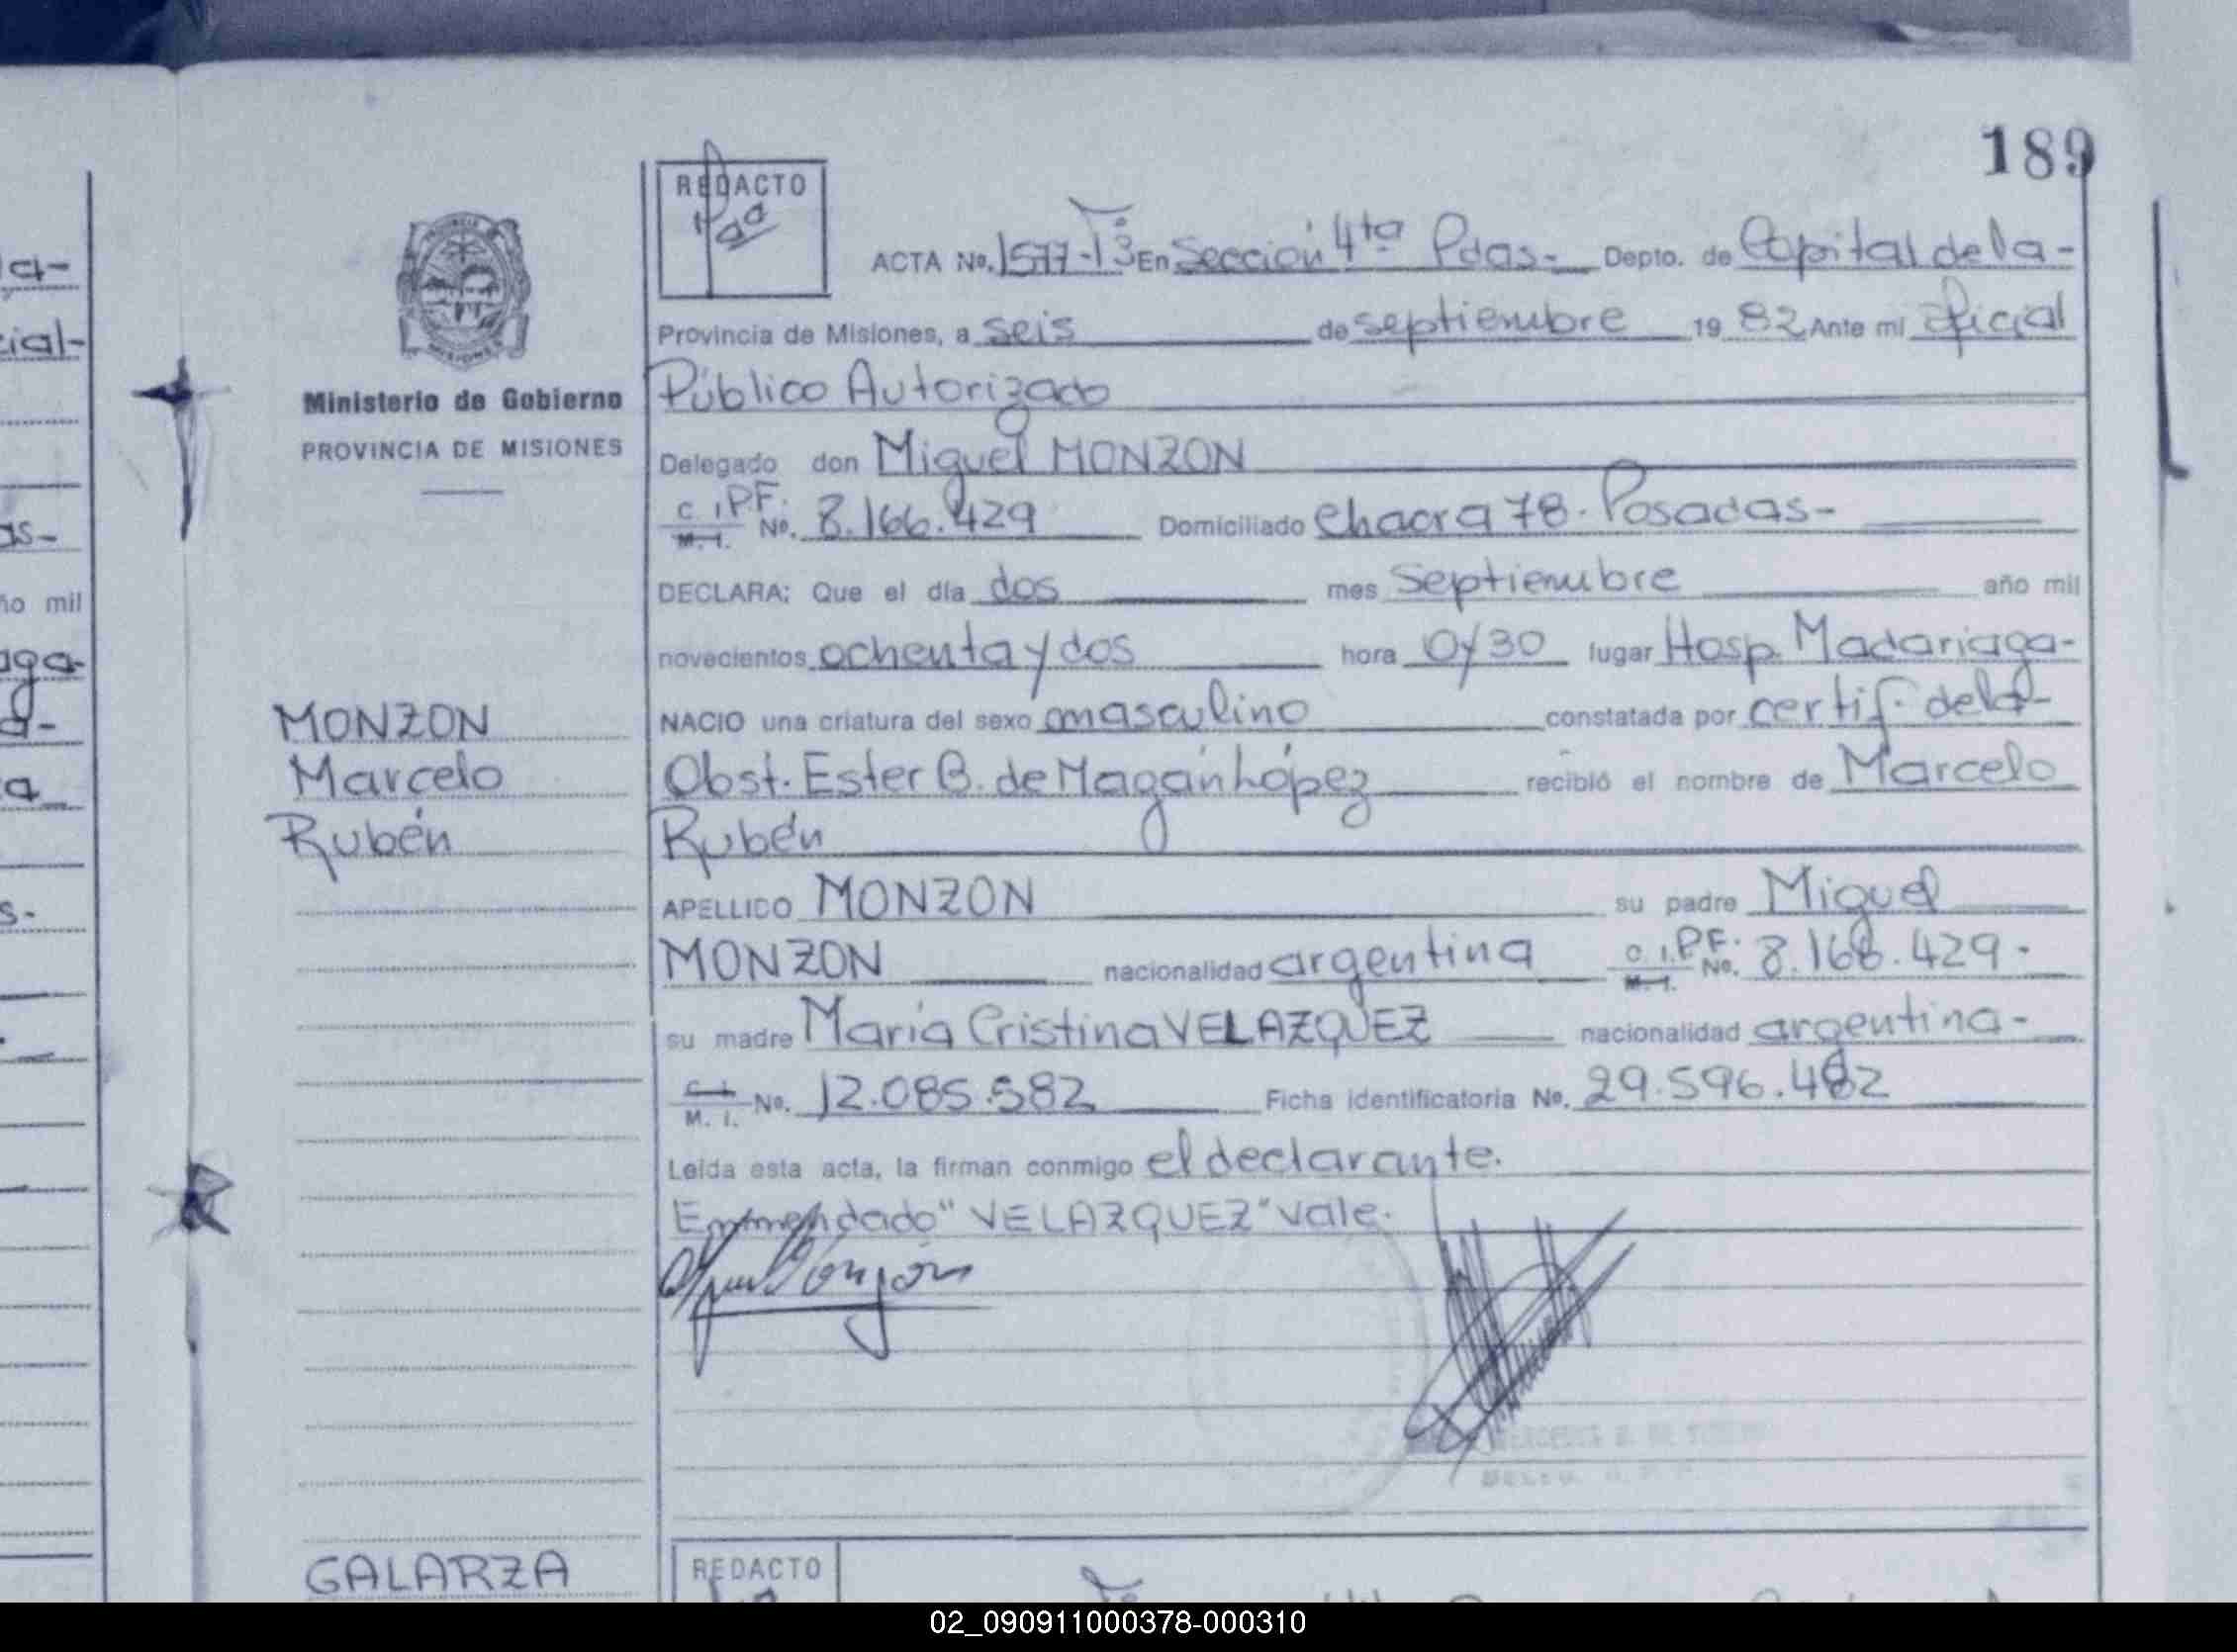 189
REDACTO
ACTA No. 1577-Tº 13 En Sección 4ta Pdas.- Depto. de Capital de la-
Provincia de Misiones, a seis de septiembre 19 82 Ante mi oficial
Público Autorizado
Ministerio de Gobierno
PROVINCIA DE MISIONES
Delegado don Miguel MONZON
C.I. PF. M.I. No. 8.166.429 Domiciliado chacra 78. Posadas-
DECLARA: Que el día dos mes septiembre año mil
novecientos ochenta y dos hora 0y30 lugar Hosp. Madariaga-
NACIO una criatura del sexo masculino constatada por certif. de la-
Obst. Ester B. de Magán López recibió el nombre de Marcelo
Rubén
MONZON
Marcelo
Rubén
APELLIDO MONZON su padre Miguel
MONZON nacionalidad argentina C.I. PF. M.I. No. 8.166.429.
su madre María Cristina VELAZQUEZ nacionalidad argentina-
C.I. M.I. No. 12.085.582 Ficha identificatoria No. 29.596.482
Leída esta acta, la firman conmigo el declarante.
Enmendado "VELAZQUEZ" vale.
GALARZA
REDACTO
ño mil
02_090911000378-000310